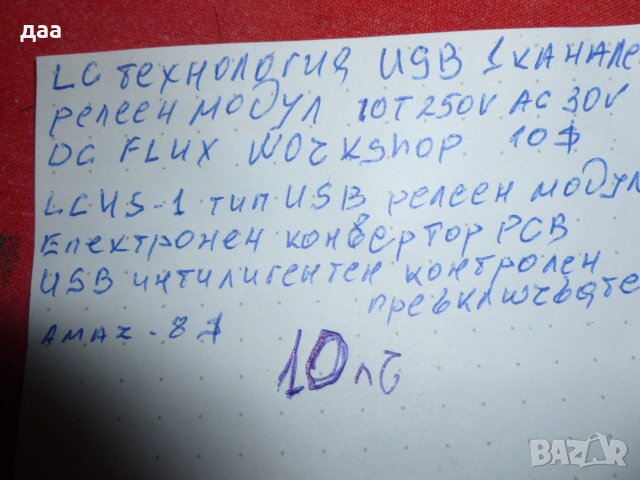 даа
LC технология USB 1 канале
релеен модул 10T250V AC 30V
DC FLUX WORKSHOP 10$
LCUS-1 тип USB релеен модул
Електронен конвертор PCB
USB интилигентен контролен
превключвате
AMAZ - 8 $
10 лв
BAZAR